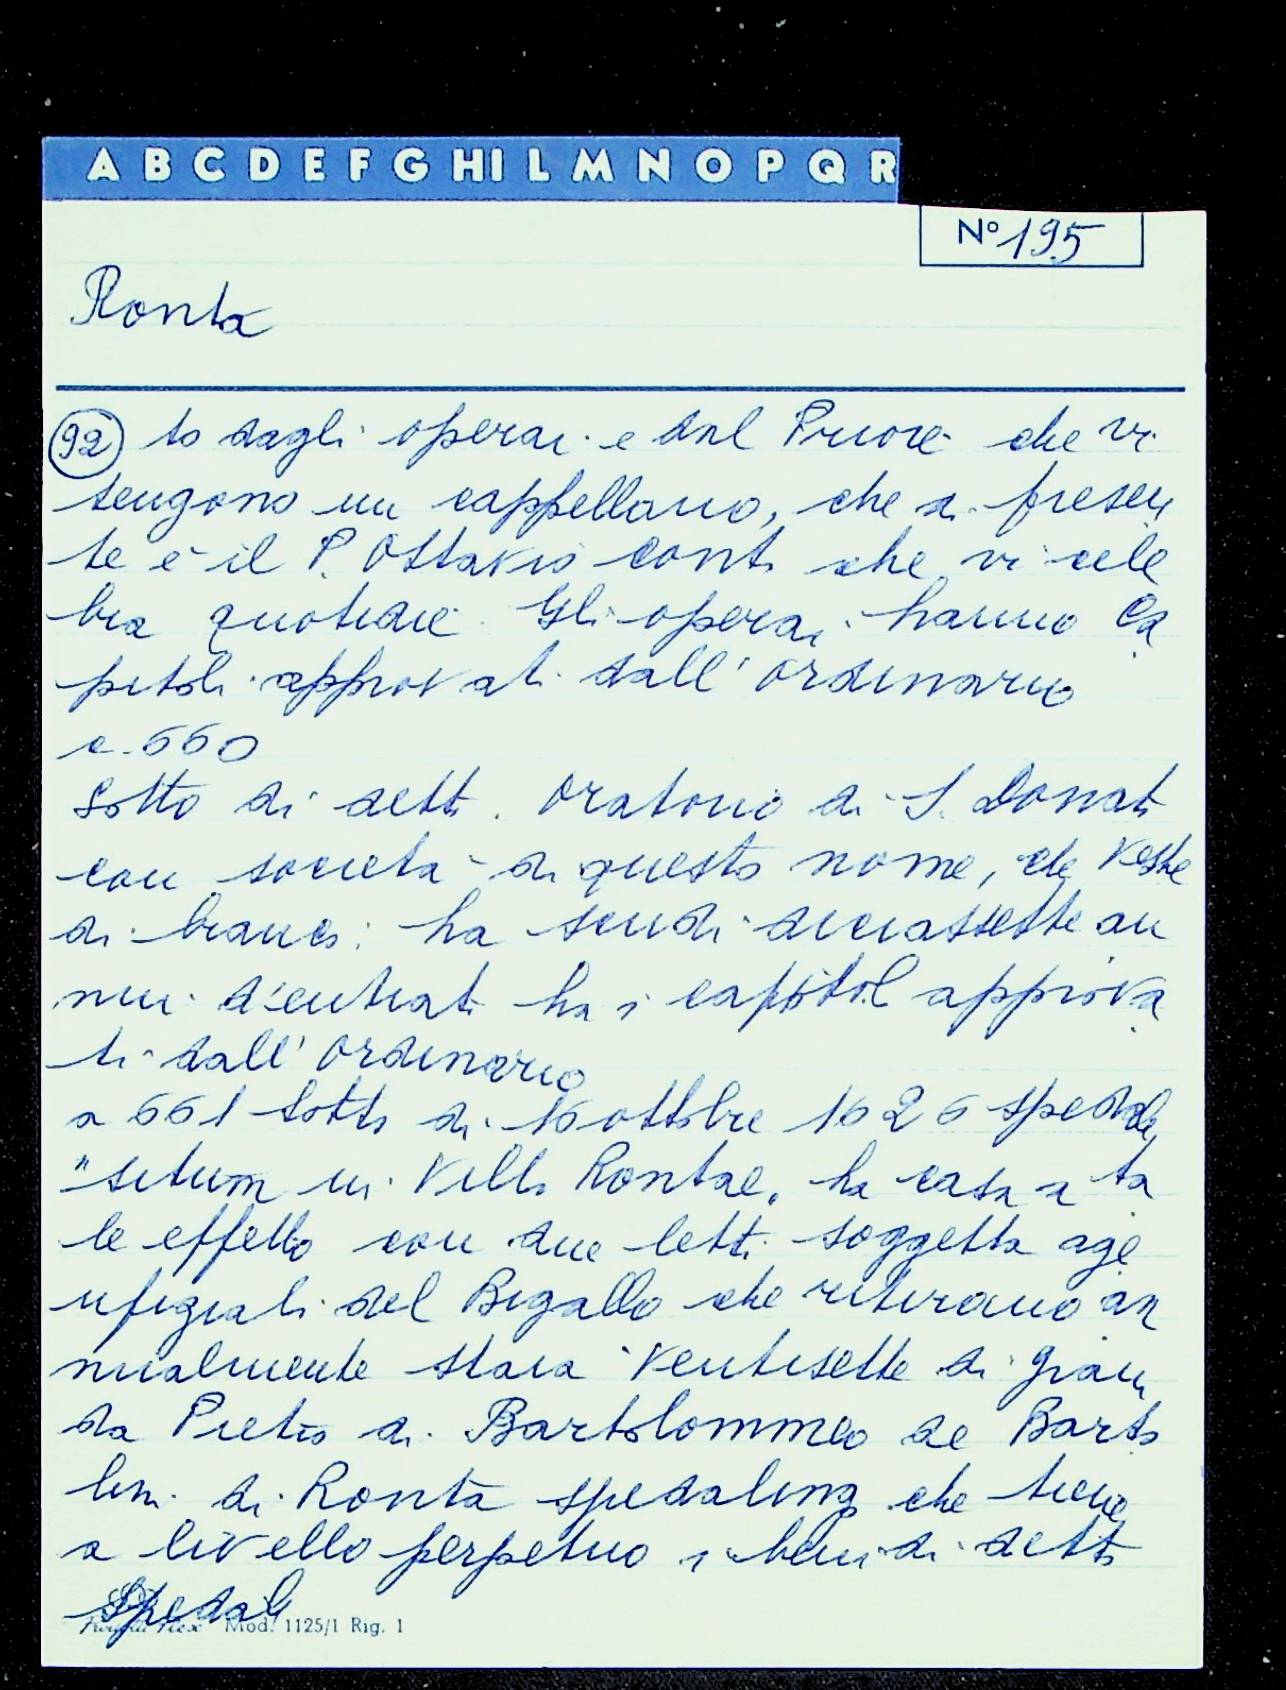 A B C D E F G HI L M N O P Q R
N° 195
Ronta
92 to dagli operai e dal Priore che vi
tengono un cappellano, che di presen
te è il P. Ottavio Conti che vi cele
bra quotidie. Gli operai hanno Ca
pitoli approvati dall'ordinario
c. 660
Sotto di detto. Oratorio di S. Donato
con società di questo nome, che veste
di bianco: ha scudi diciassette an
nui d'entrata ha i capitoli approva
ti dall'ordinario
a 661 sotto di 16 ottobre 1626 spedale
"situm in Villa Rontae. ha casa a ta
le effetto con due letti soggetta agl
ufiziali del Bigallo che ritirano an
nualmente staia ventisette di grano
da Pietro di Bartolommeo de Barto
lini di Ronta spedalingo che tiene
a livello perpetuo i beni di detto
spedale
Mod. 1125/1 Rig. 1